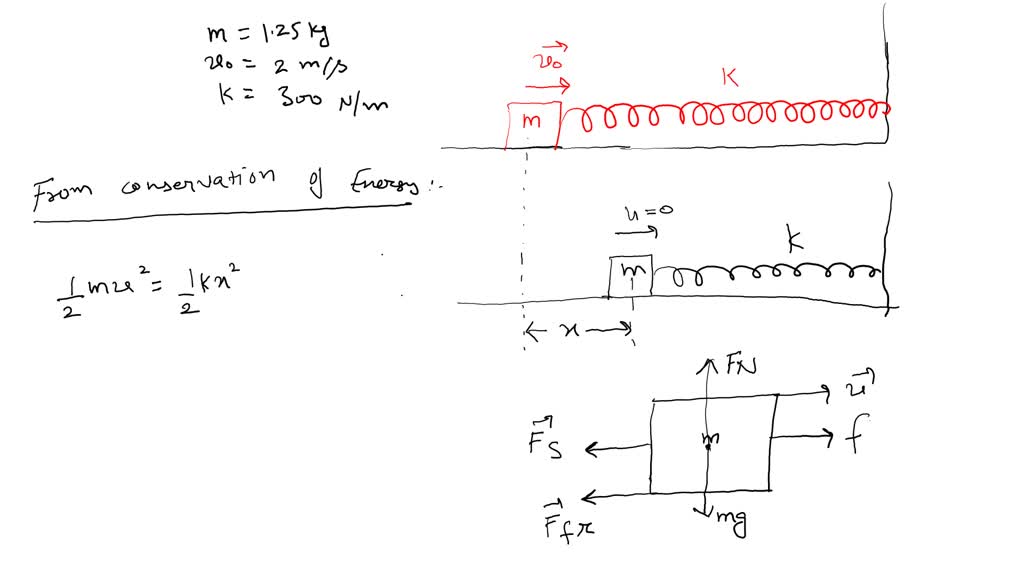 m = 1.25 kg
u₀ = 2 m/s
K = 300 N/m
From conservation of Energy:-
1/2 mu² = 1/2 kx²
u₀
K
m
u=0
K
m
x
FN
u
Fs
m
f
Ffr
mg